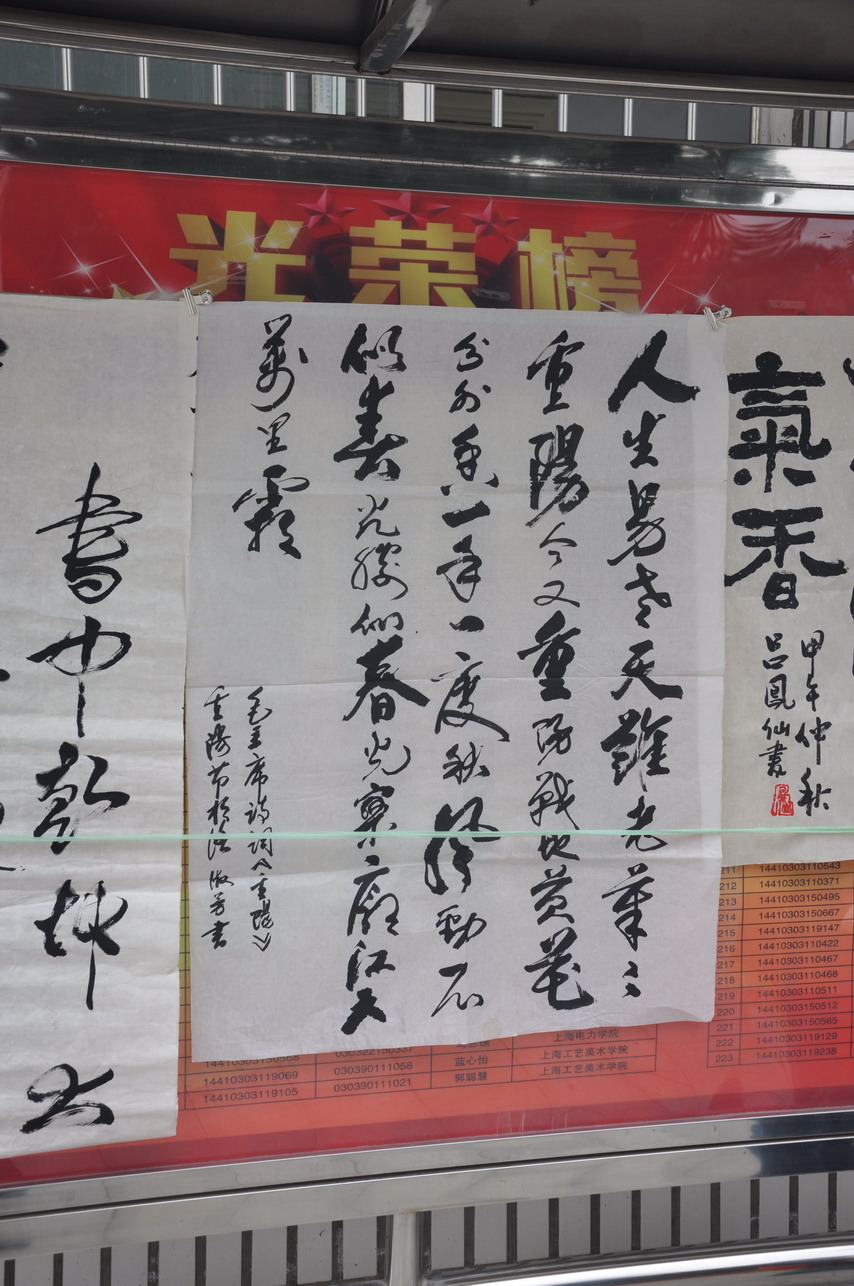 光荣榜
氣香
甲午仲秋
呂鳳仙書
人生易老天難老歲々
重陽今又重陽戰地黃花
分外香一年一度秋風勁不
似春光勝似春光寥廓江天
萬里霜
毛主席詩詞《重陽》
重陽節於 淑芳書
書中乾坤大
211 14410303110543
212 14410303110371
213 14410303150495
214 14410303150667
215 14410303119147
216 14410303110422
217 14410303110467
218 14410303110468
219 14410303110511
220 14410303150512
221 14410303150565
222 14410303119129
223 14410303119238
14410303150568 030322150337 上海电力学院
14410303119069 030390111058 蓝心怡 上海工艺美术学院
14410303119105 030390111021 郭聪慧 上海工艺美术学院